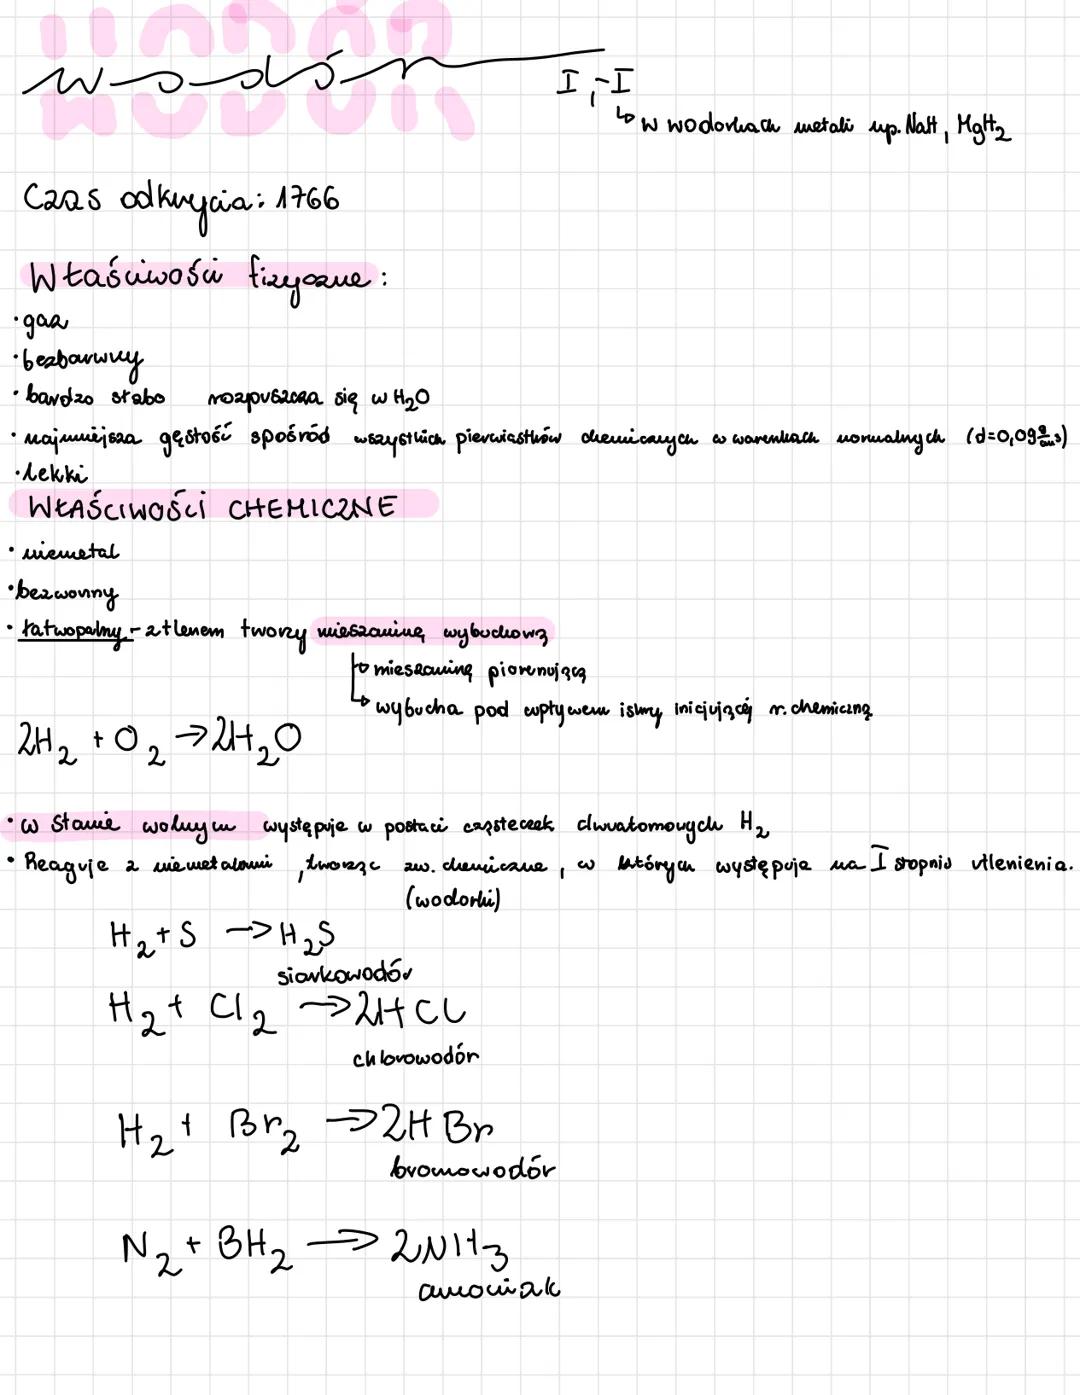 WODÓR
wodór I, -I
↳ w wodorkach metali np. NaH, MgH₂
Czas odkrycia: 1766
Właściwości fizyczne:
• gaz
• bezbarwny
• bardzo słabo rozpuszcza się w H₂O
• najmniejsza gęstość spośród wszystkich pierwiastków chemicznych w warunkach normalnych (d=0,09 g/dm³)
• lekki
WŁAŚCIWOŚCI CHEMICZNE
• niemetal
• bezwonny
• łatwopalny - z tlenem tworzy mieszaninę wybuchową
↳ mieszaninę piorunującą
↳ wybucha pod wpływem iskry inicjującej r. chemiczną
2H₂ + O₂ → 2H₂O
• w stanie wolnym występuje w postaci cząsteczek dwuatomowych H₂
• Reaguje z niemetalami, tworząc zw. chemiczne, w których występuja na I stopniu utlenienia.
(wodorki)
H₂ + S → H₂S
siarkowodór
H₂ + Cl₂ → 2HCl
chlorowodór
H₂ + Br₂ → 2HBr
bromowodór
N₂ + 3H₂ → 2NH₃
amoniak